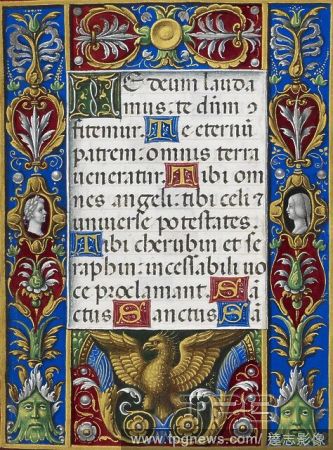 TE deum lauda
mus: te dūm ꝯ
fitemur. Te eternū
patrem: omnis terra
ueneratur. Tibi om
nes angeli: tibi celi ⁊
uniuerse potestates.
Tibi cherubin et se
raphin: incessabili uo
ce proclamant. Sā
ctus Sanctus Sā
www.tpgnews.com/ 達志影像